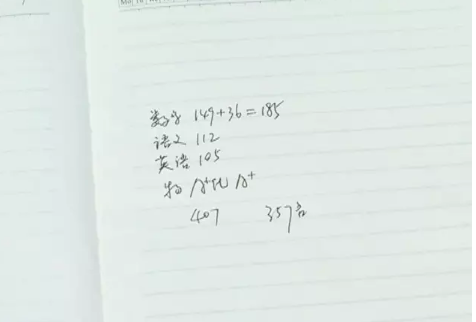 数学 149+36=185
语文 112
英语 105
物 A+化 A+
407 357名